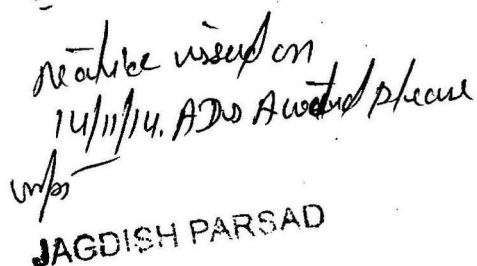 issued on
14/11/14. ADs Awaited please
JAGDISH PARSAD